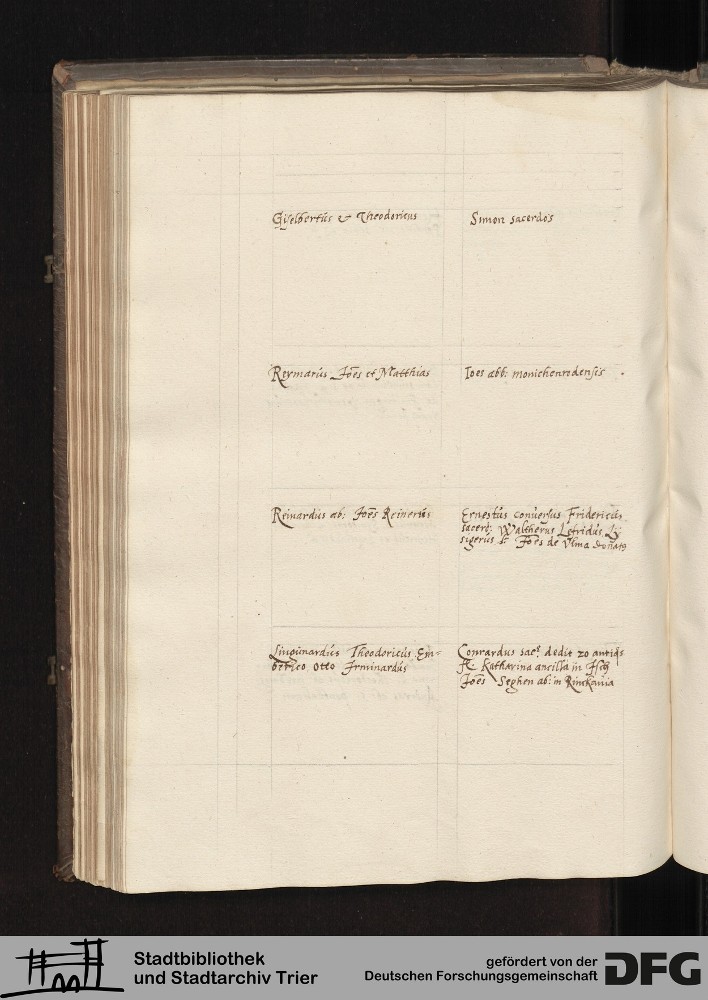 Giselbertus et Theodoricus
Simon sacerdos
Reymarus Joes et Matthias
Ioes abb: monichenrodensis
Reinardus ab: Joes Reinerus
Ernestus conuersus Fridericus
sacerd: Waltherus Lefridus Ly
sigerus Joes de Vlma donatus
Theodoricus Em=
berico Otto Irminardus
Conrardus sac dedit 20 antiqs
fl. Katharina ancilla in
Joes Seghen ab: in Rinckauia
Stadtbibliothek
und Stadtarchiv Trier
gefördert von der
Deutschen Forschungsgemeinschaft
DFG